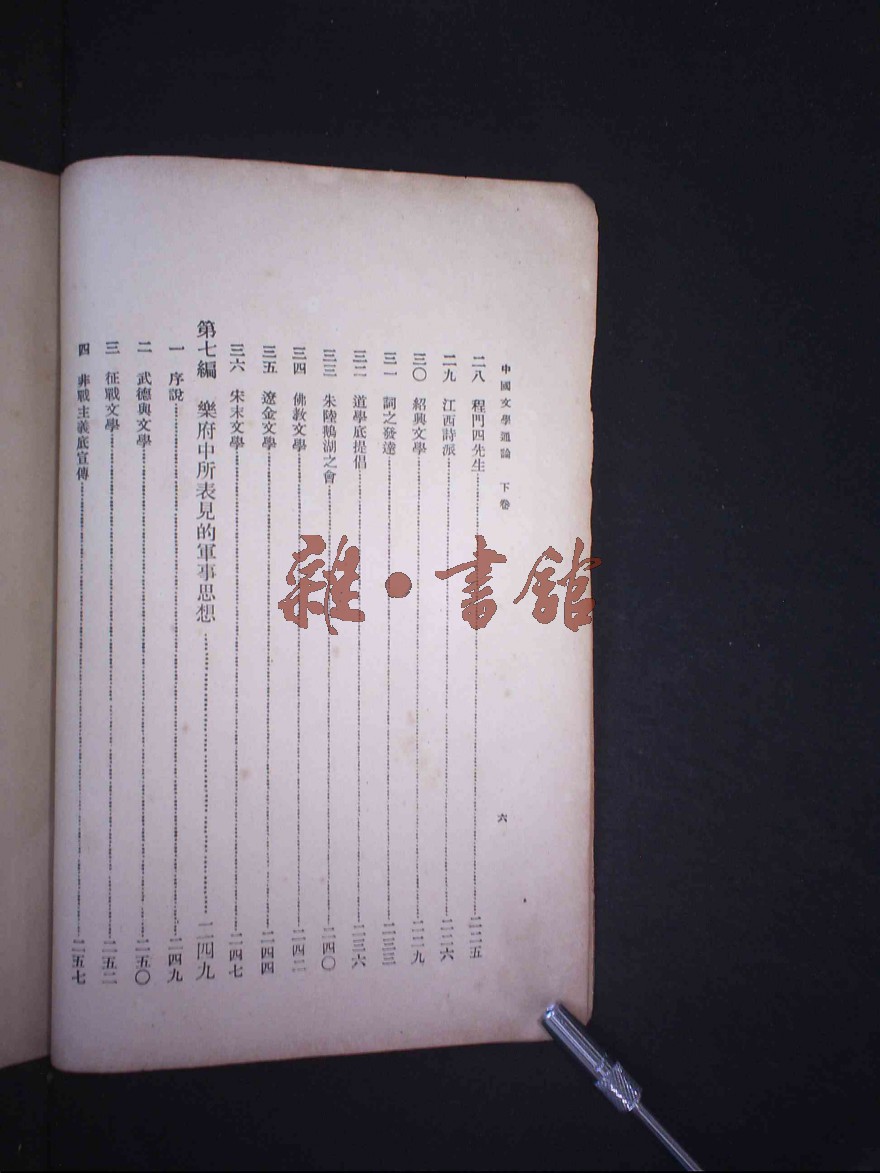 中國文學通論 下卷 六
二八 程門四先生 二二五
二九 江西詩派 二二六
三〇 紹興文學 二二九
三一 詞之發達 二三三
三二 道學底提倡 二三六
三三 朱陸鵝湖之會 二四〇
三四 佛教文學 二四二
三五 遼金文學 二四四
三六 宋末文學 二四七
第七編 樂府中所表見的軍事思想 二四九
一 序說 二四九
二 武德與文學 二五〇
三 征戰文學 二五二
四 非戰主義底宣傳 二五七
雜·書館